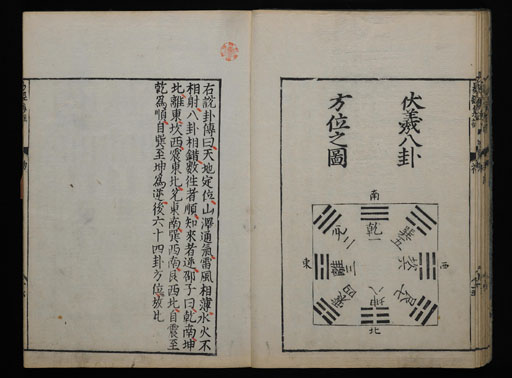 伏羲八卦
方位之圖
南
乾一
兌二
巽五
東
離三
坎六
西
震四
坤八
艮七
北
右說卦傳曰天地定位山澤通氣雷風相薄水火不
相射八卦相錯數往者順知來者逆邵子曰乾南坤
北離東坎西震東北兌東南巽西南艮西北自震至
乾爲順自巽至坤爲逆後六十四卦方位放此